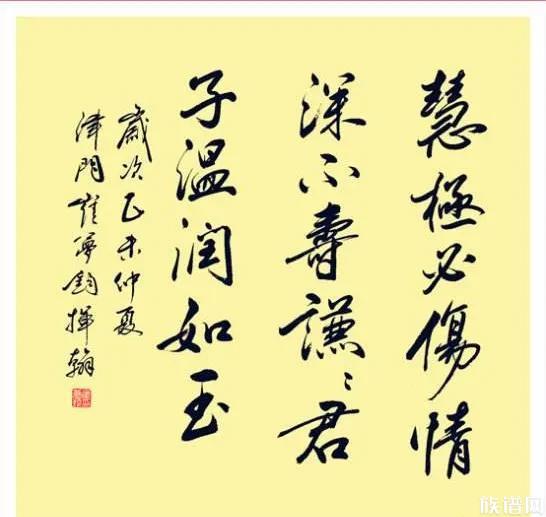 慧極必傷情
深不壽謙〻君
子溫潤如玉
歲次乙未仲夏
津門崔夢鈞揮翰
族谱网